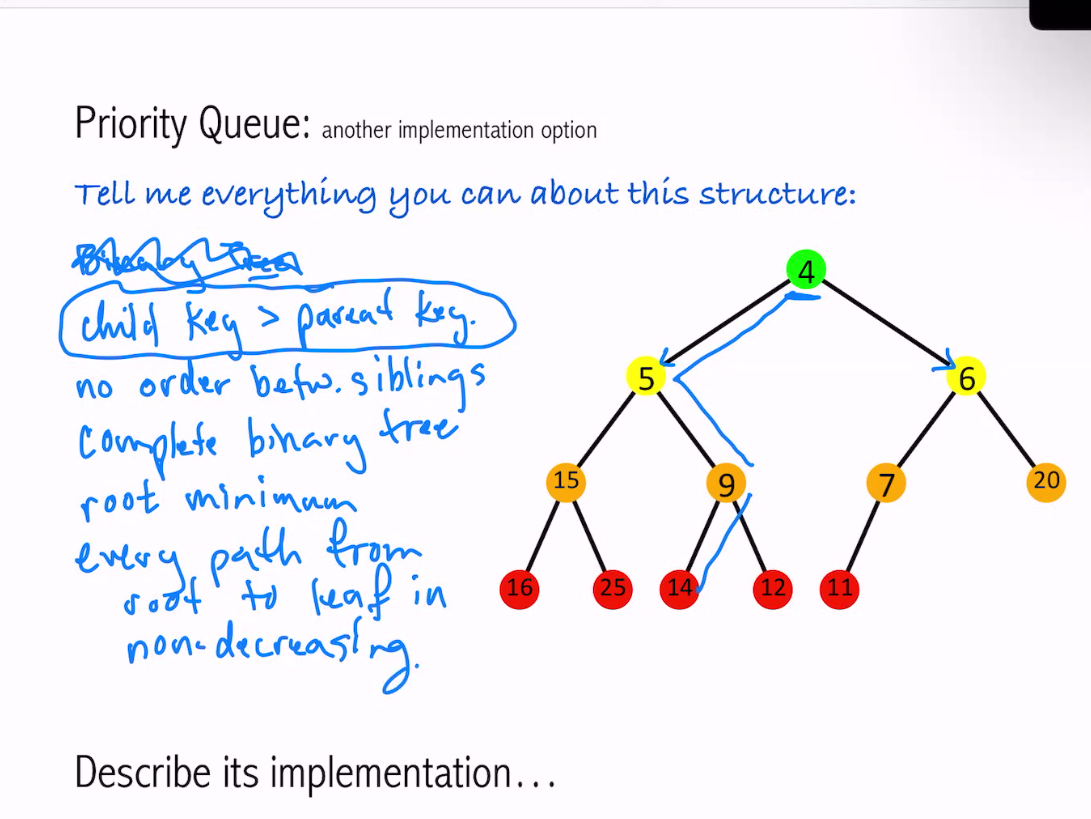 Priority Queue: another implementation option
Tell me everything you can about this structure:
Binary Tree
child key > parent key.
no order betw. siblings
complete binary tree
root minimum
every path from
root to leaf in
non-decreasing.
4
5 6
15 9 7 20
16 25 14 12 11
Describe its implementation...